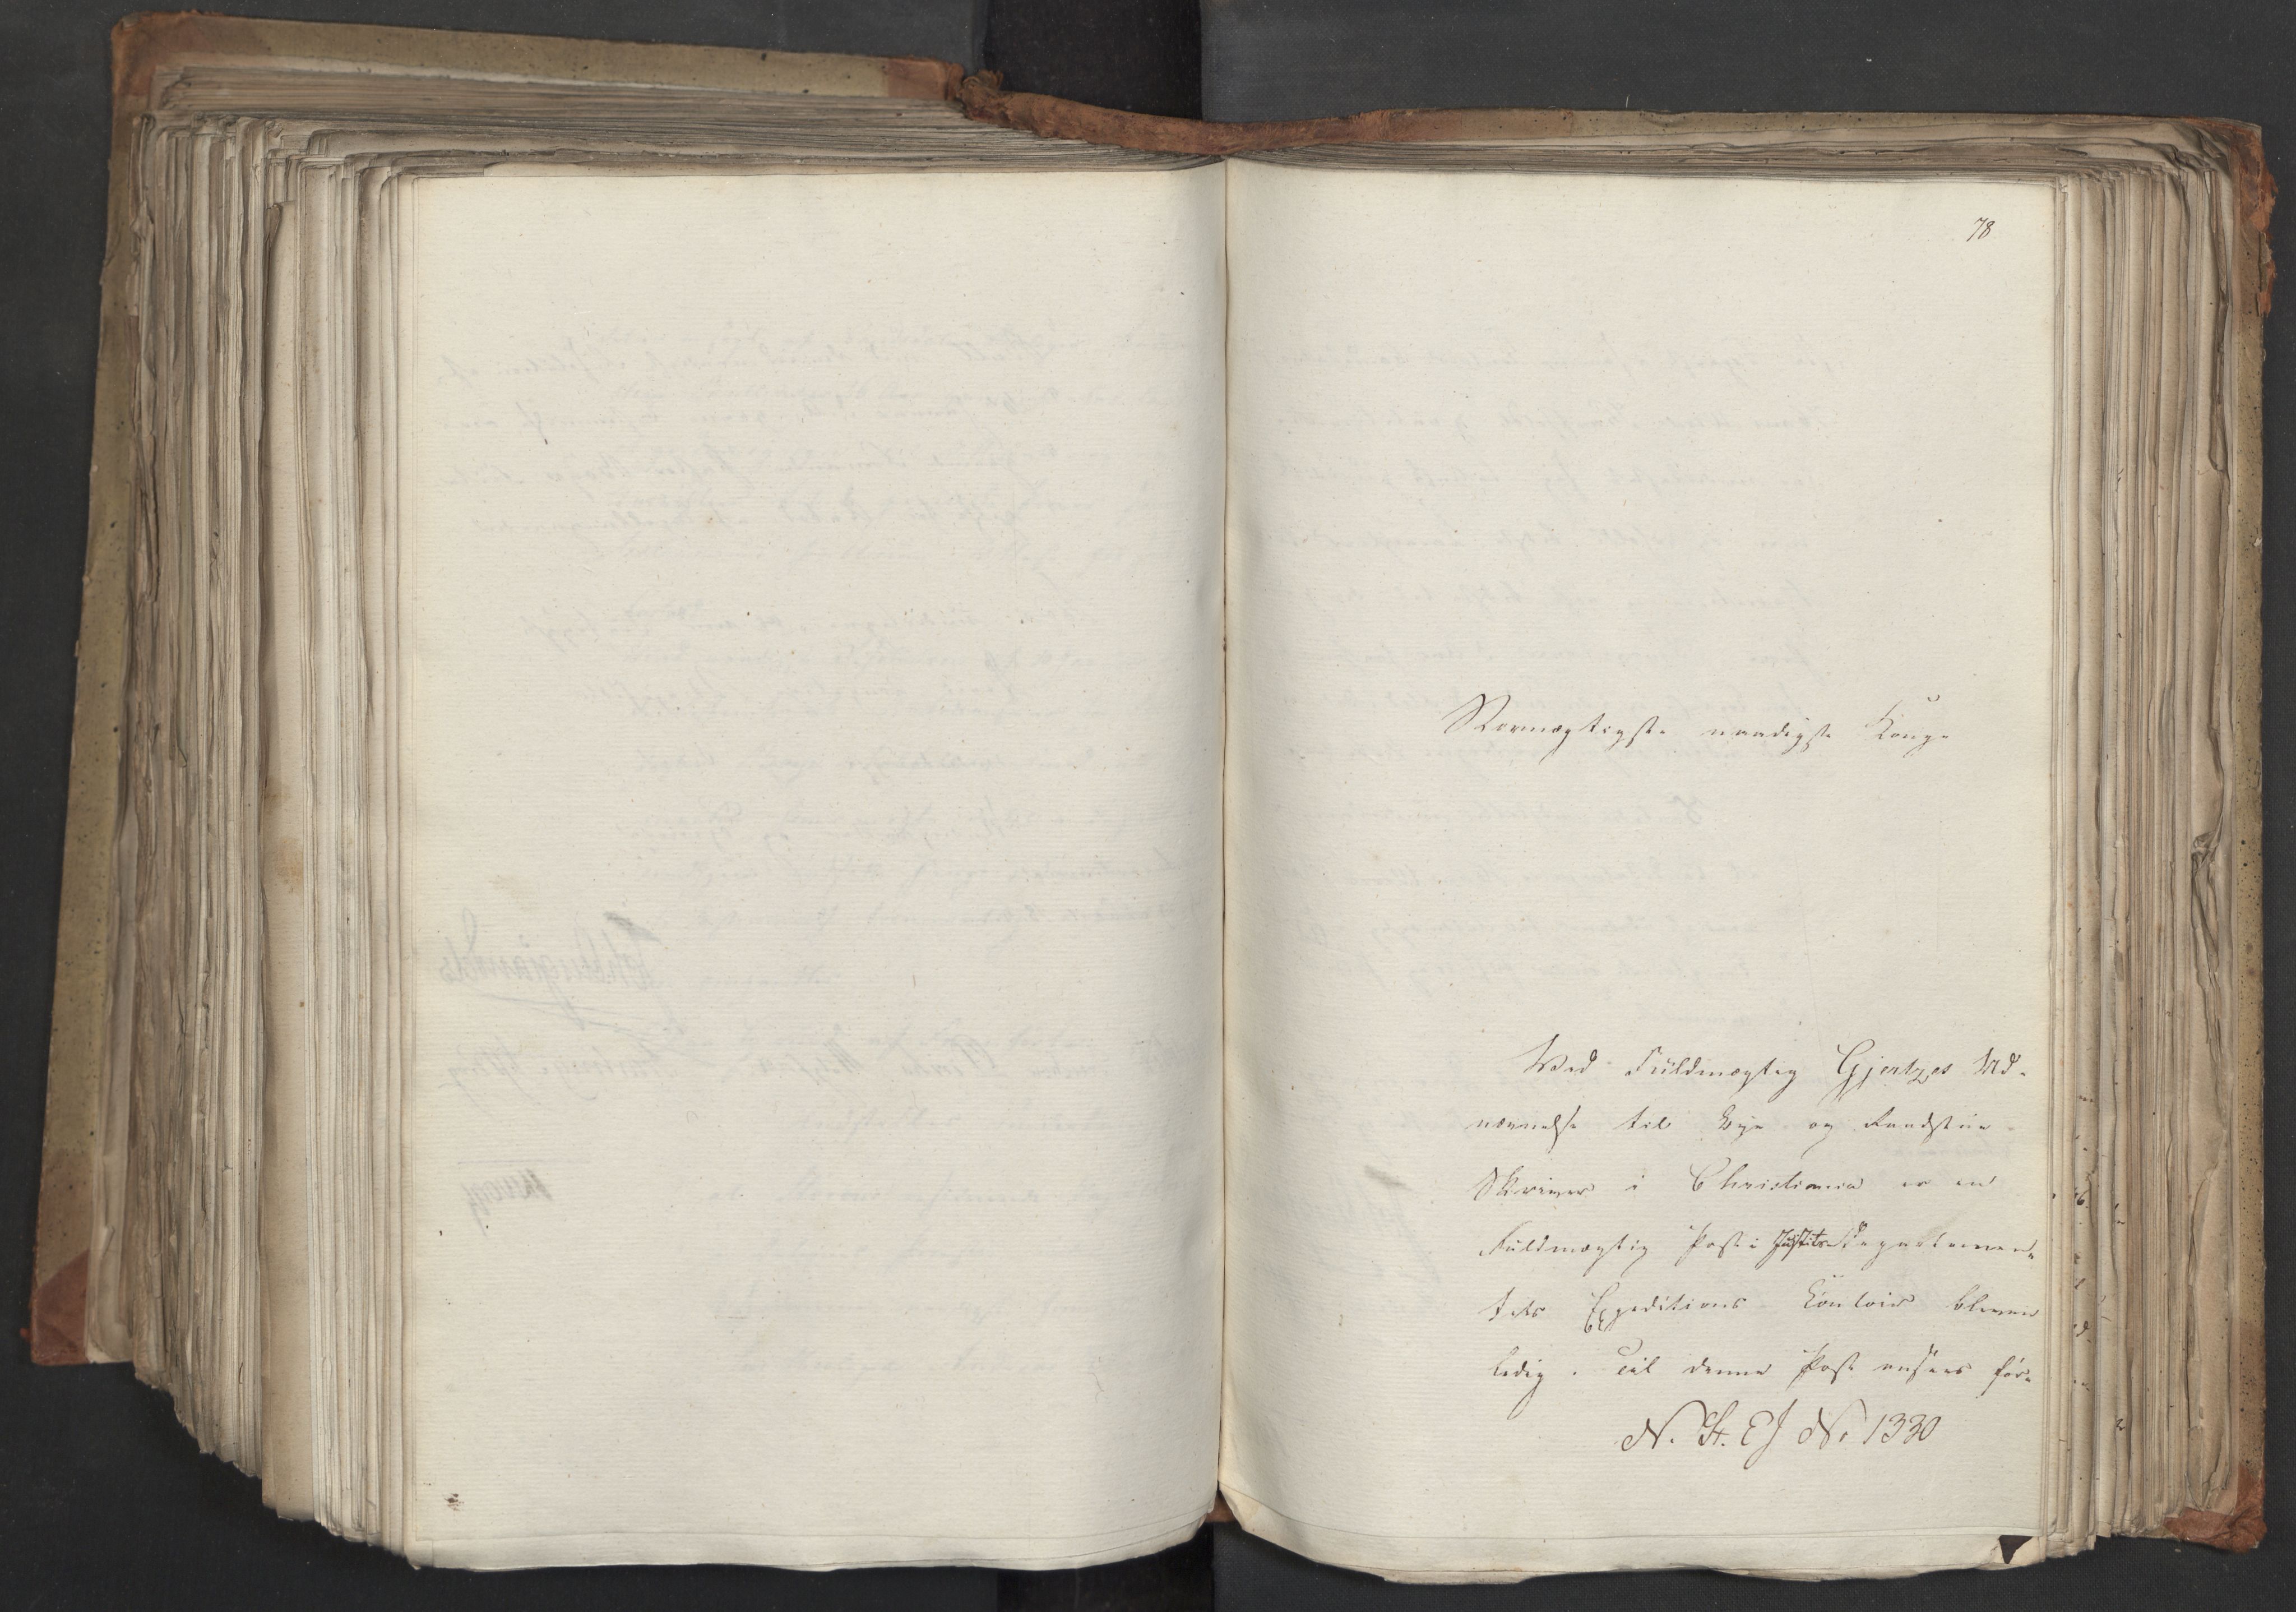 78
Stormægtigste naadigste Konge
Ved Fuldmægtig Gjertzes Ud-
nævnelse til Bye og Raadstue-
Skriver i Christiania er en
Fuldmægtig Post i Justits Departemen-
tets Expeditions Contoir bleven
ledig. Til denne Post ansees for-
N. St. E J No 1330